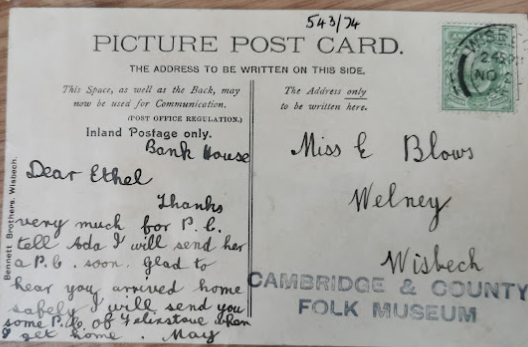 543/74
PICTURE POST CARD.
THE ADDRESS TO BE WRITTEN ON THIS SIDE.
This Space, as well as the Back, may
now be used for Communication.
(POST OFFICE REGULATION.)
Inland Postage only.
The Address only
to be written here.
Bank House
Dear Ethel
Thanks
very much for P.C.
tell Ada I will send her
a P.C. soon. Glad to
hear you arrived home
safely I will send you
some P.C. of Felixstowe when
I get home. May
Bennett Brothers, Wisbech.
Miss E Blows
Welney
Wisbech
CAMBRIDGE & COUNTY
FOLK MUSEUM
WISBE
NO